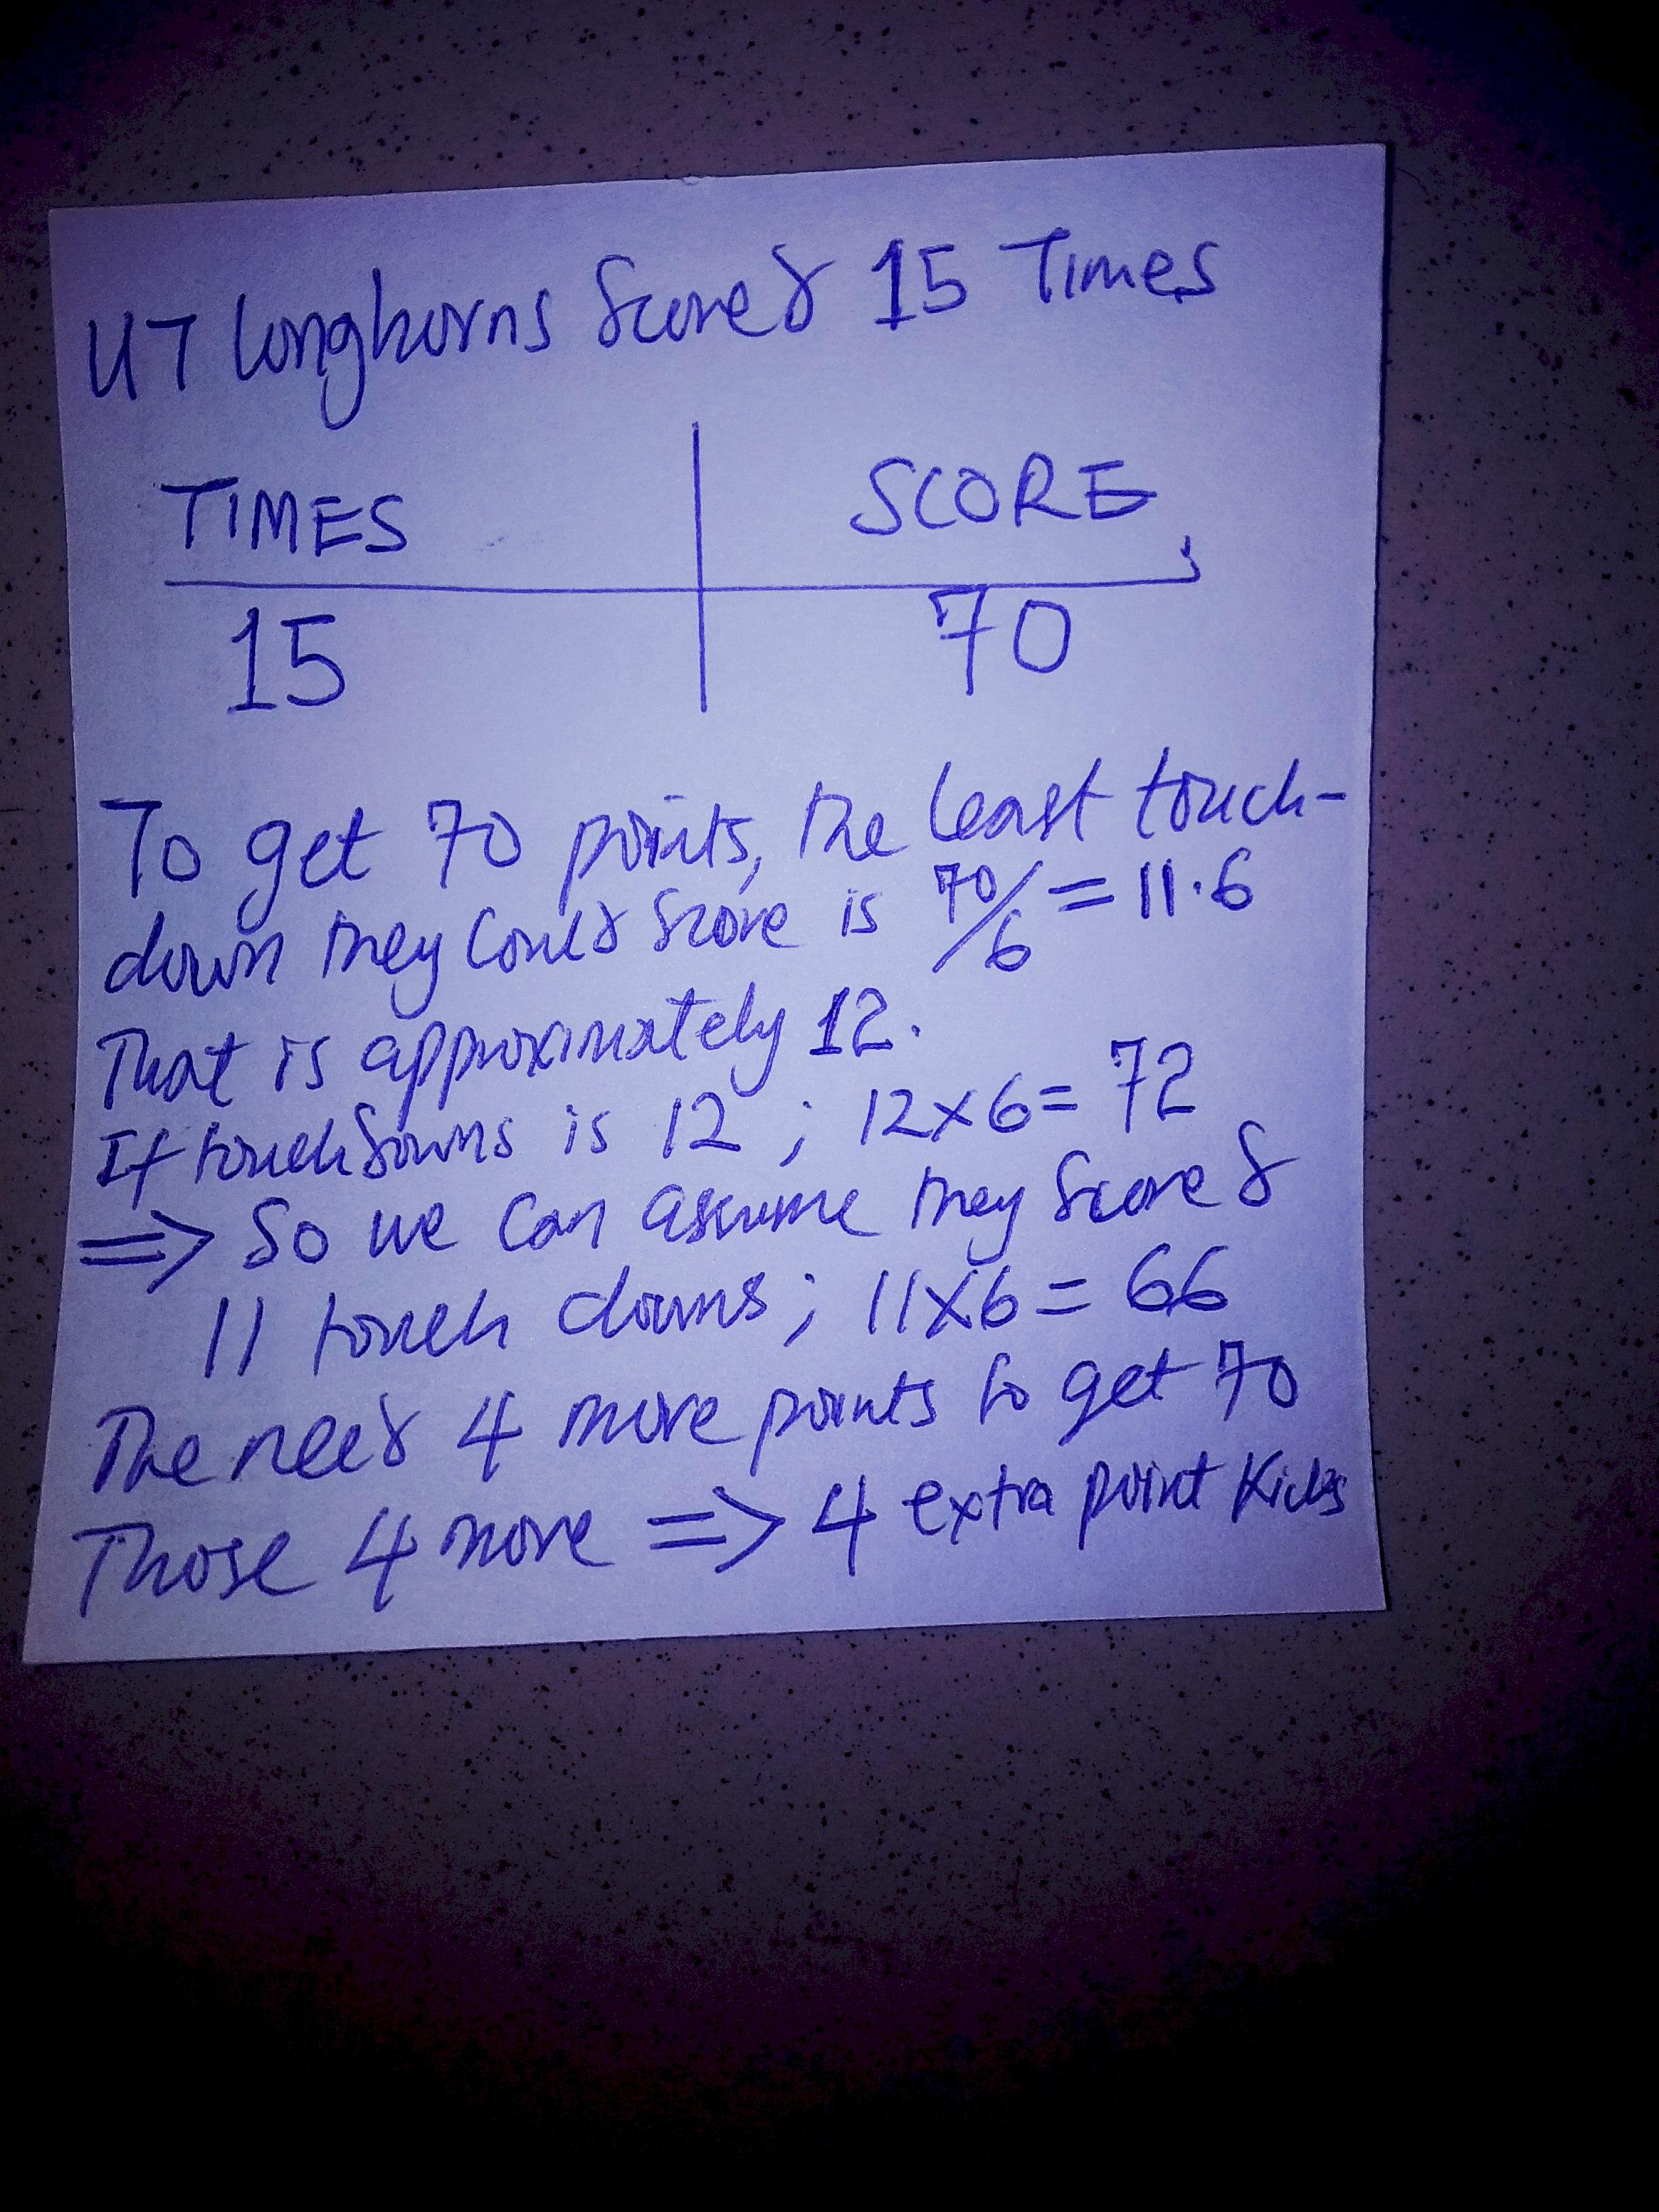 UT longhorns Scored 15 Times
TIMES SCORE
15 70
To get 70 points, the least touch-
down they could score is 70/6 = 11.6
That is approximately 12.
If touchdowns is 12 ; 12x6= 72
=> So we can assume they scored
11 touch downs ; 11x6 = 66
The need 4 more points to get 70
Those 4 more => 4 extra point kicks